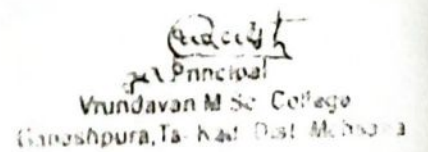 Principal
Vrundavan M Sc College
Ganeshpura, Ta- Kadi Dist Mehsana